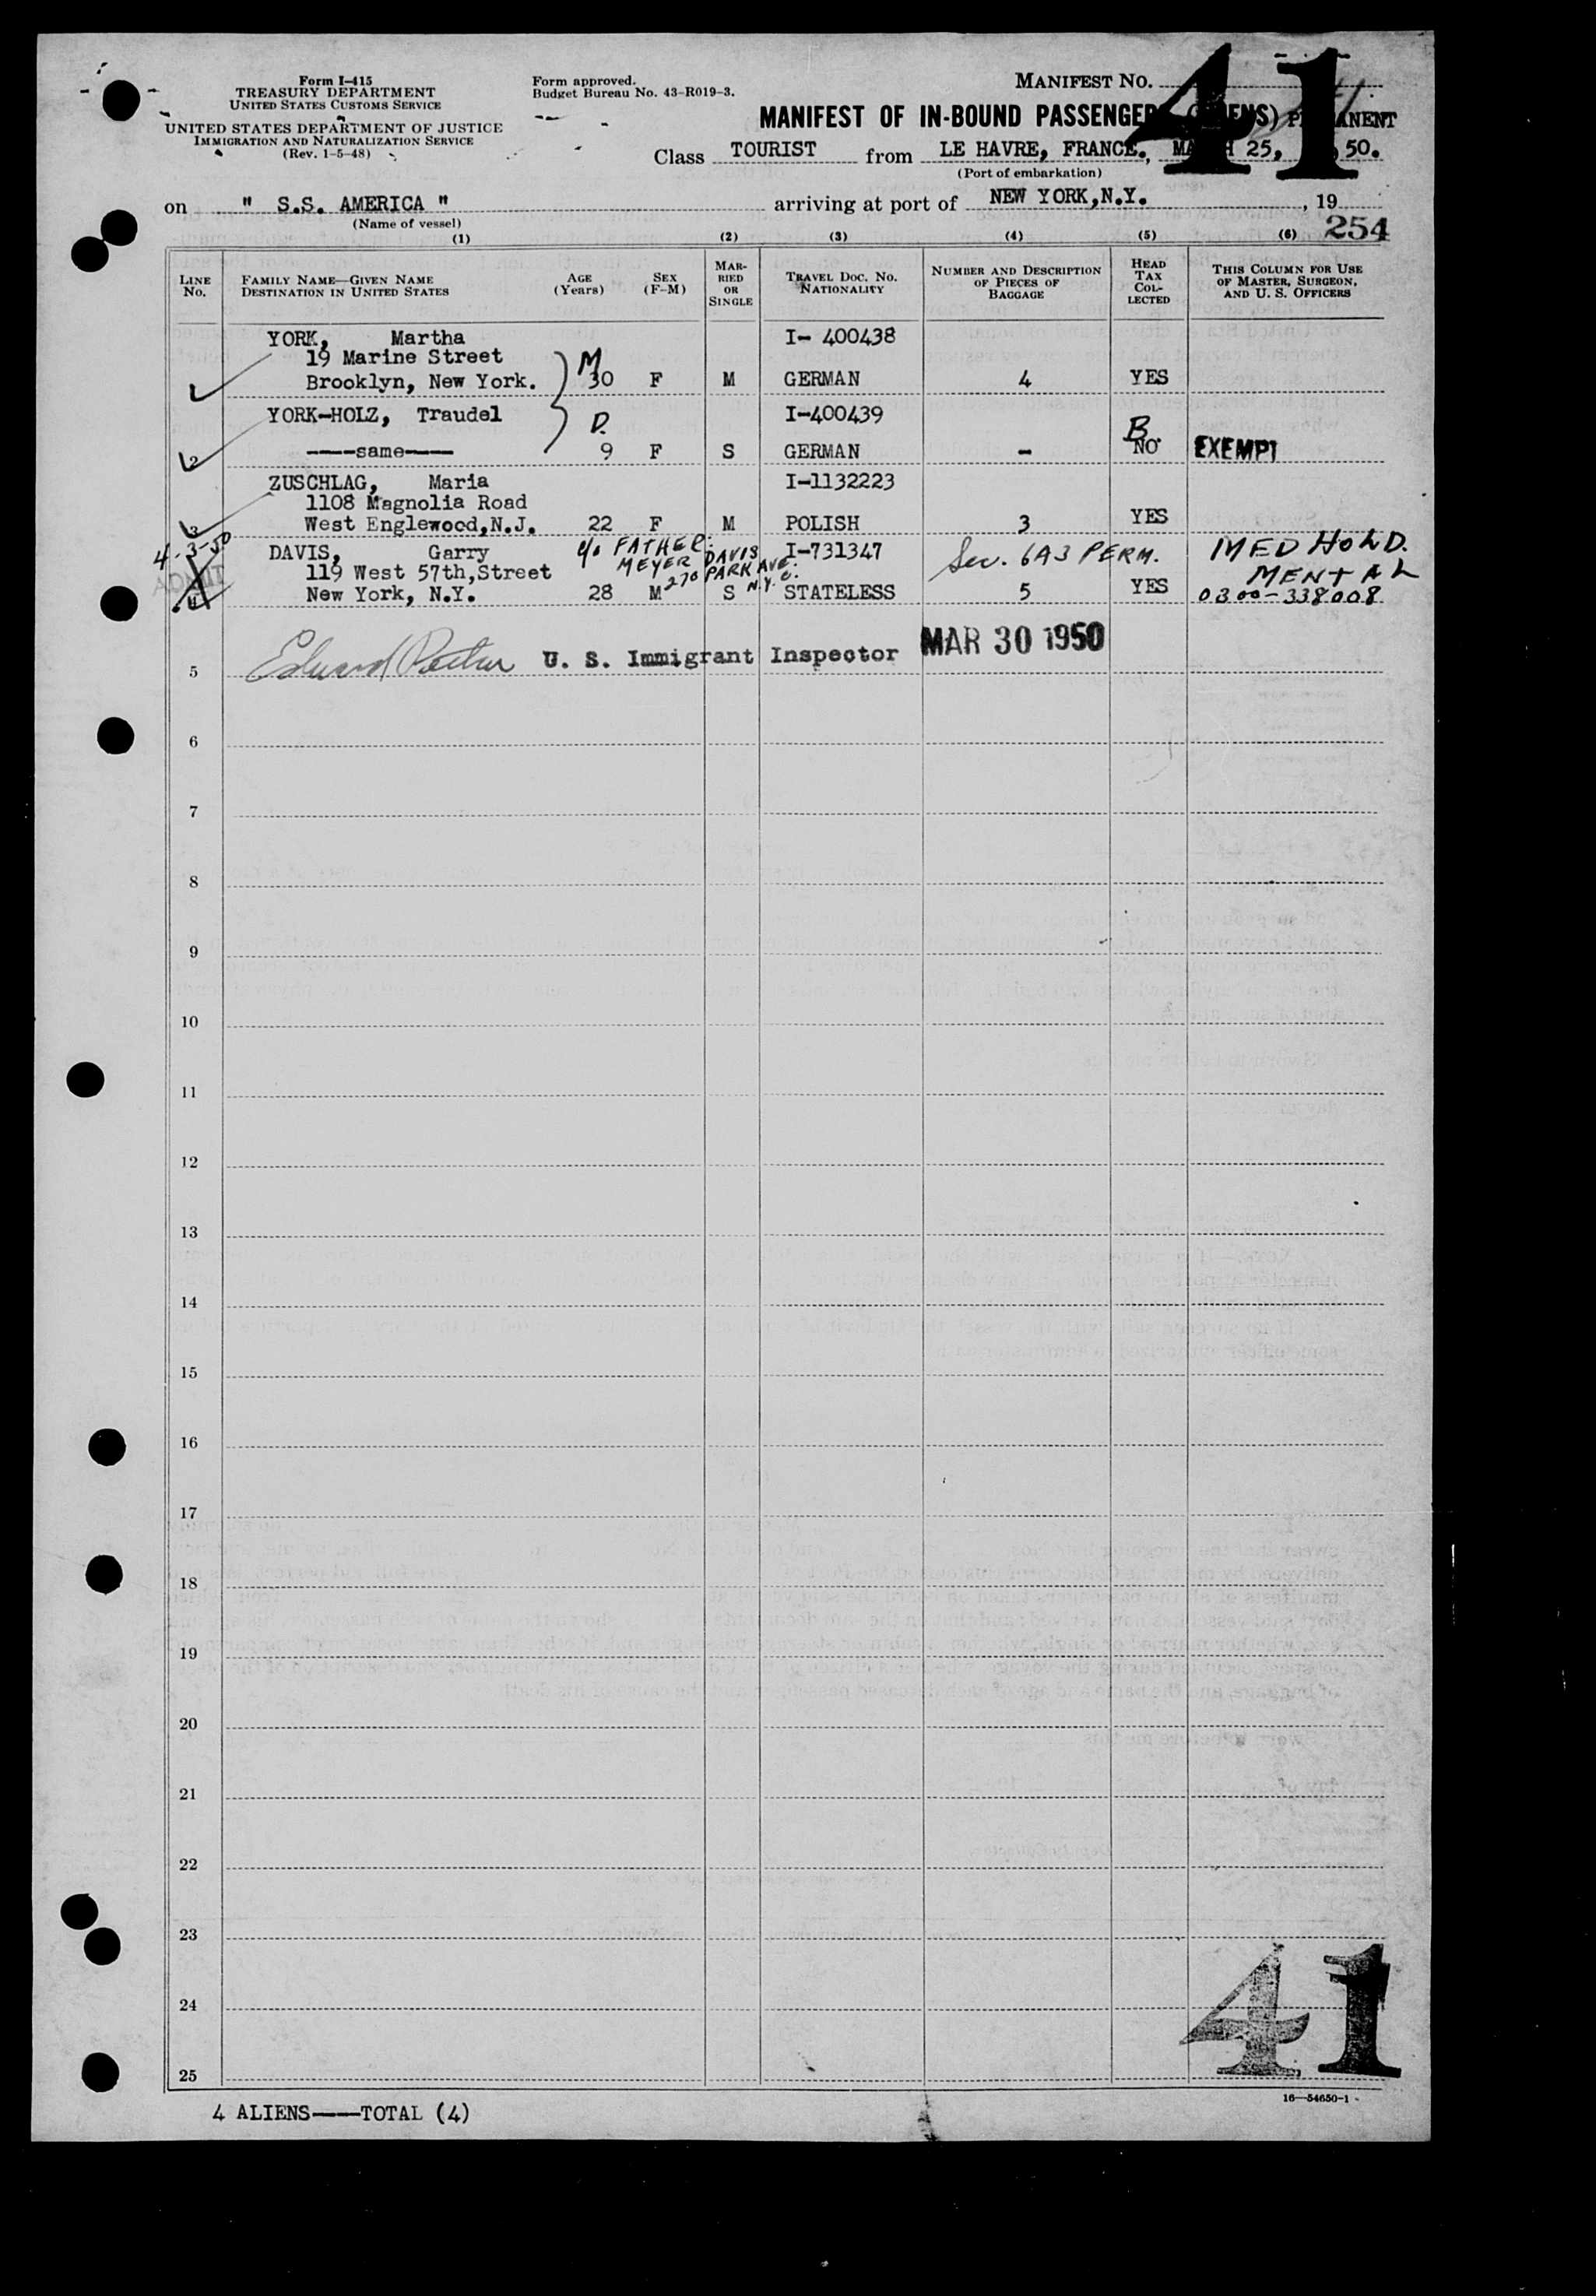 Form I-415
TREASURY DEPARTMENT
UNITED STATES CUSTOMS SERVICE
UNITED STATES DEPARTMENT OF JUSTICE
IMMIGRATION AND NATURALIZATION SERVICE
(Rev. 1-5-48)
Form approved.
Budget Bureau No. 43-R019-3.
MANIFEST NO.
41
MANIFEST OF IN-BOUND PASSENGERS
Class TOURIST from LE HAVRE, FRANCE., MARCH 25, 50.
(Port of embarkation)
on " S.S. AMERICA " arriving at port of NEW YORK,N.Y. , 19
(Name of vessel)
254
(1) (2) (3) (4) (5) (6)
LINE No. FAMILY NAME—GIVEN NAME DESTINATION IN UNITED STATES AGE (Years) SEX (F-M) MARRIED OR SINGLE TRAVEL DOC. NO. NATIONALITY NUMBER AND DESCRIPTION OF PIECES OF BAGGAGE HEAD TAX COLLECTED THIS COLUMN FOR USE OF MASTER, SURGEON, AND U. S. OFFICERS
YORK, Martha I- 400438
19 Marine Street M
Brooklyn, New York. 30 F M GERMAN 4 YES
YORK-HOLZ, Traudel D. I-400439 B
2 ----same---- 9 F S GERMAN - NO EXEMPT
ZUSCHLAG, Maria I-1132223
1108 Magnolia Road
3 West Englewood,N.J. 22 F M POLISH 3 YES
4-3-50 DAVIS, Garry c/o FATHER: MEYER DAVIS I-731347 Sec. 6A3 PERM. MED HOLD.
ADMIT 119 West 57th,Street 270 PARK AVE. N.Y.C. MENTAL
4 New York, N.Y. 28 M S STATELESS 5 YES 0300-338008
5 U. S. Immigrant Inspector MAR 30 1950
6
7
8
9
10
11
12
13
14
15
16
17
18
19
20
21
22
23
24
25
41
16—54650-1
4 ALIENS----TOTAL (4)